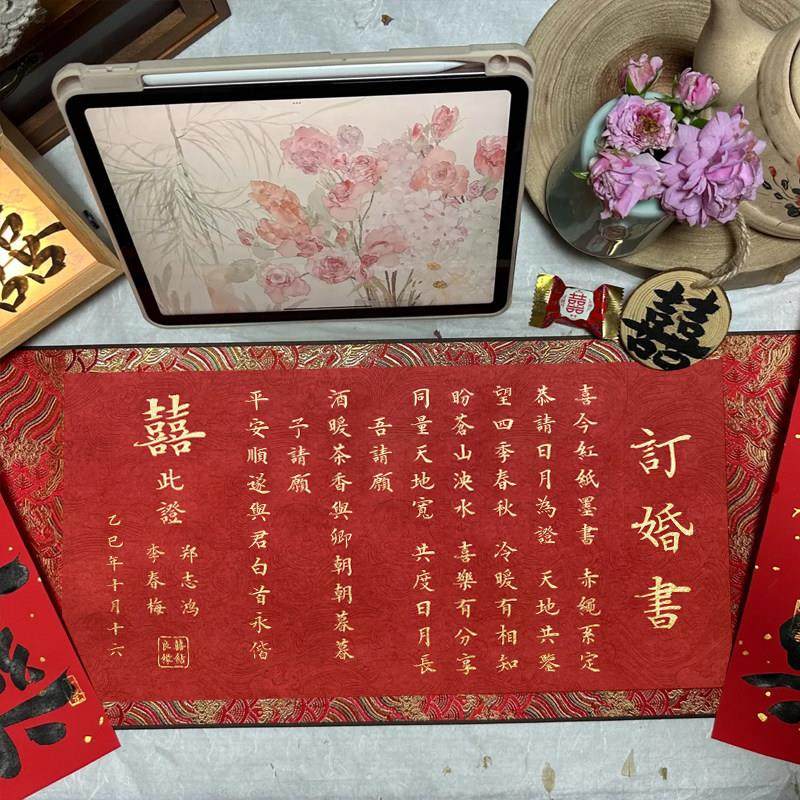 訂婚書
喜今紅紙墨書 赤繩系定
恭請日月為證 天地共鑒
望四季春秋 冷暖有相知
盼蒼山泱水 喜樂有分享
同量天地寬 共度日月長
吾請願
酒暖茶香與卿朝朝暮暮
予請願
平安順遂與君白首永偕
囍
此證
郑志鸿
李春梅
乙巳年十月十六
囍
囍
樂